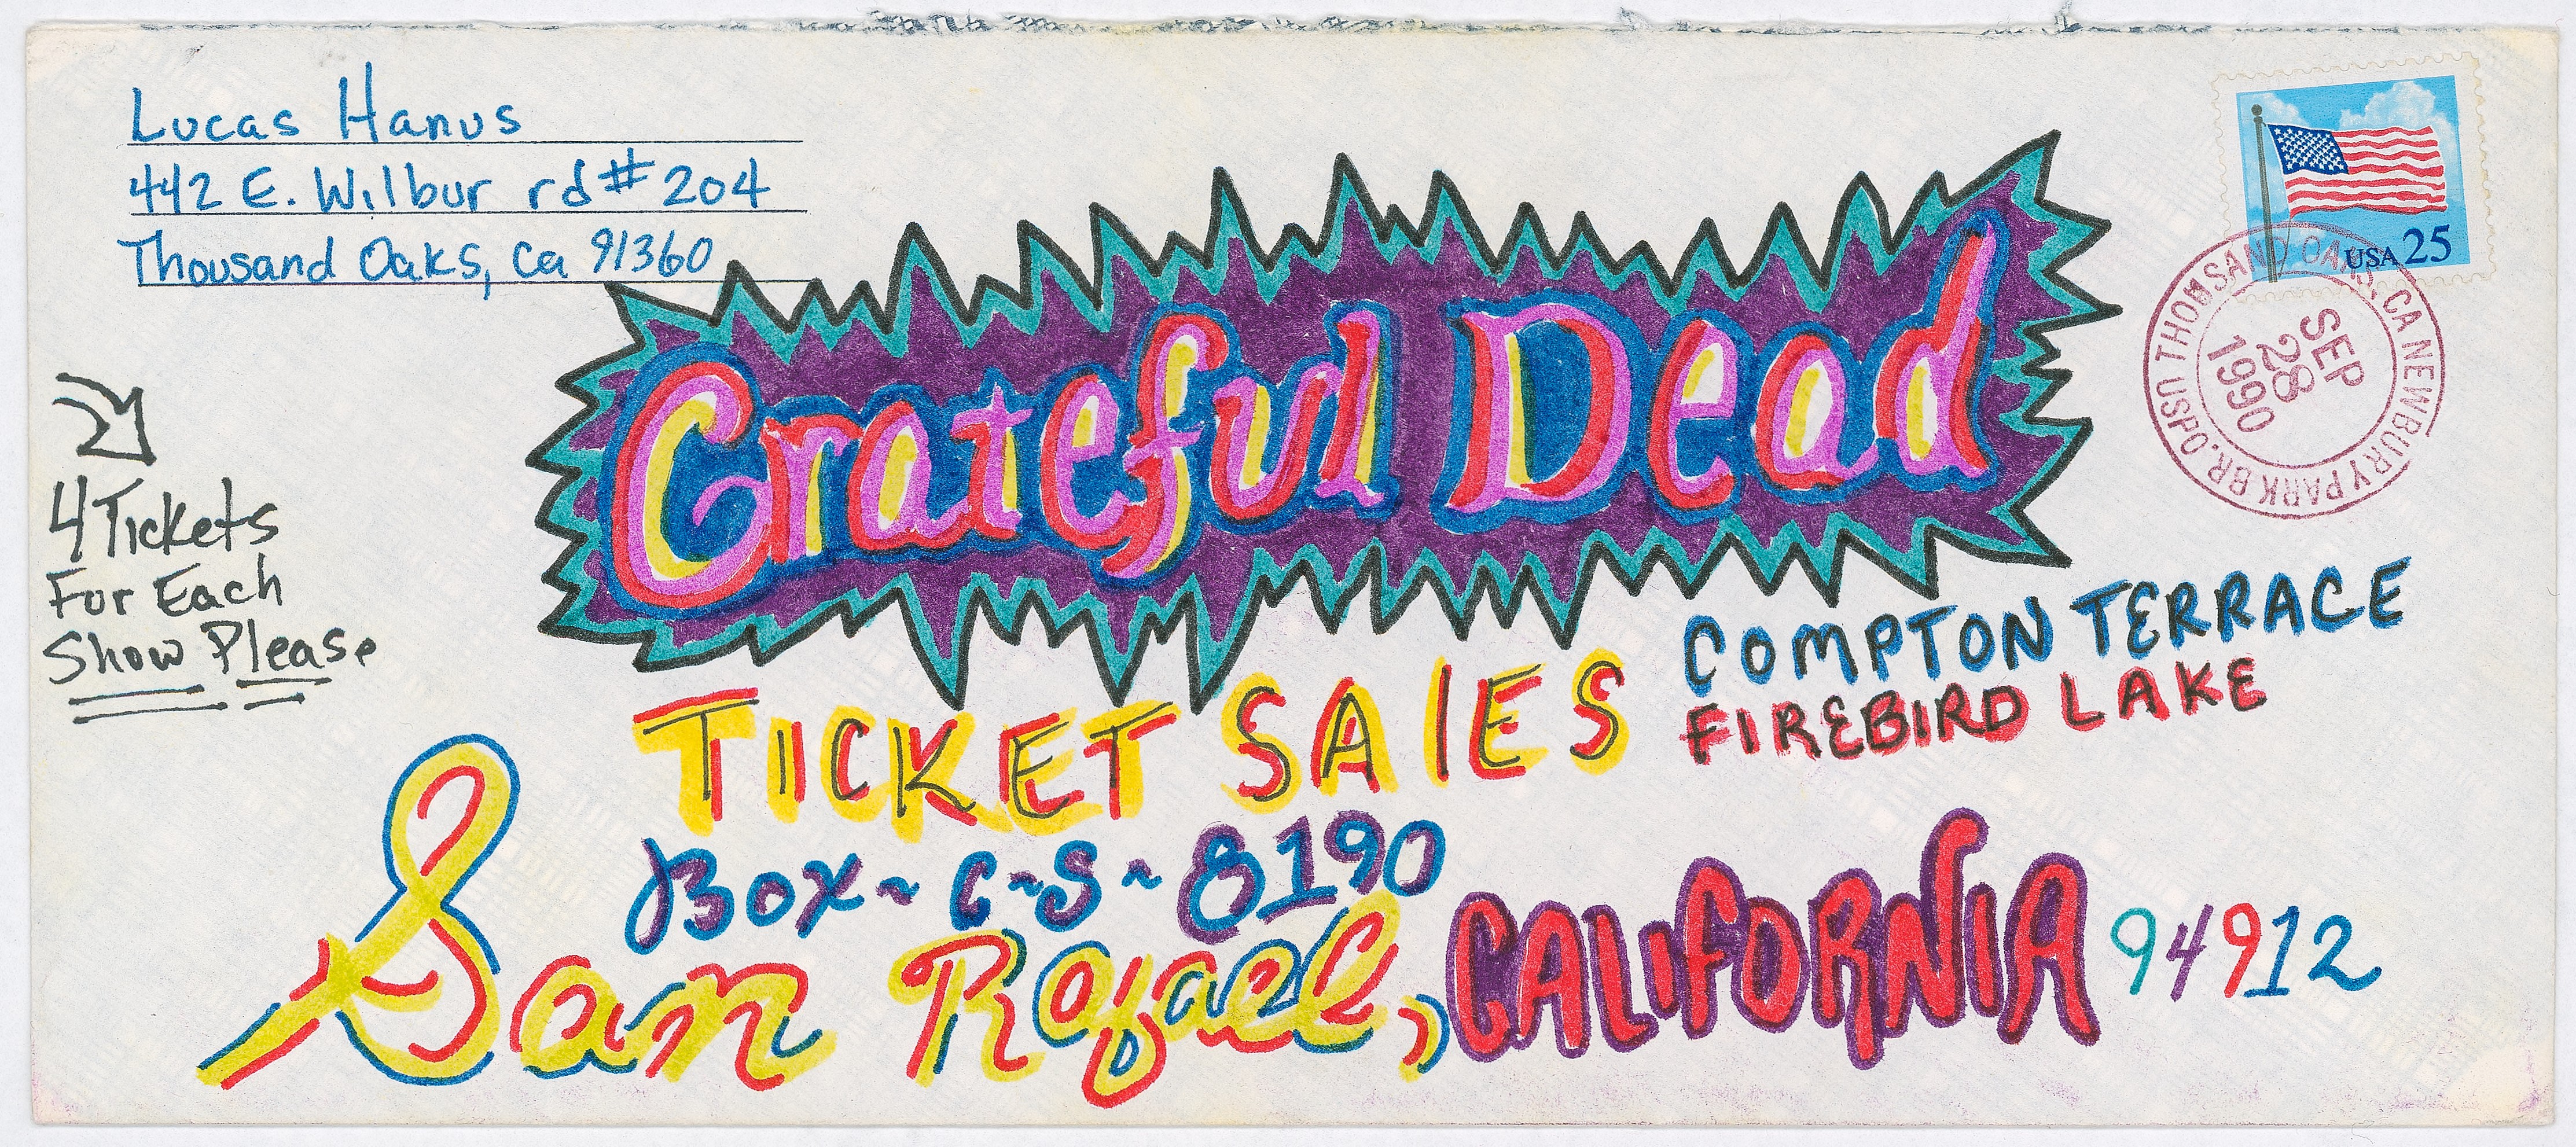 Lucas Hanus
442 E. Wilbur rd # 204
Thousand Oaks, Ca 91360
USA 25
THOUSAND OAKS, CA NEWBURY PARK BR. USPO
SEP
28
1990
Grateful Dead
4 Tickets
For Each
Show Please
COMPTON TERRACE
FIREBIRD LAKE
TICKET SAlES
Box~C~S~8190
San Rafael, CALIFORNIA 94912